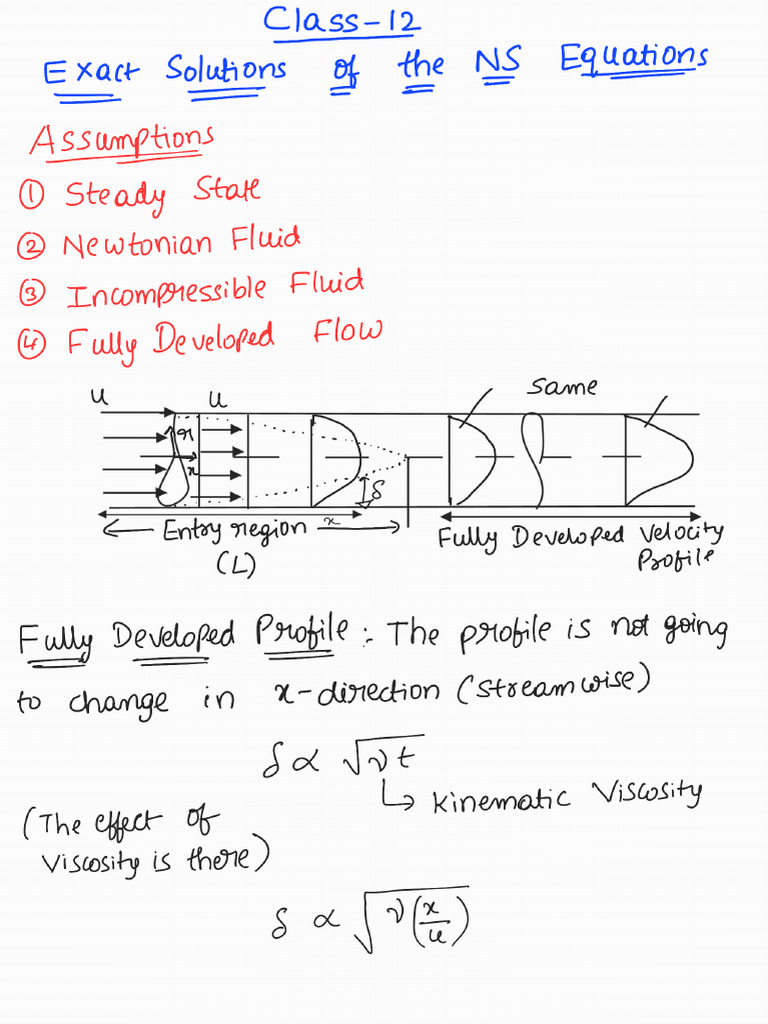 Class-12
Exact Solutions of the NS Equations
Assumptions
① Steady State
② Newtonian Fluid
③ Incompressible Fluid
④ Fully Developed Flow
u
u
same
r
x
δ
Entry region x
(L)
Fully Developed Velocity
Profile
Fully Developed Profile :- The profile is not going
to change in x-direction (streamwise)
δ ∝ √νt
↳ Kinematic Viscosity
(The effect of
Viscosity is there)
δ ∝ √ν(x/u)